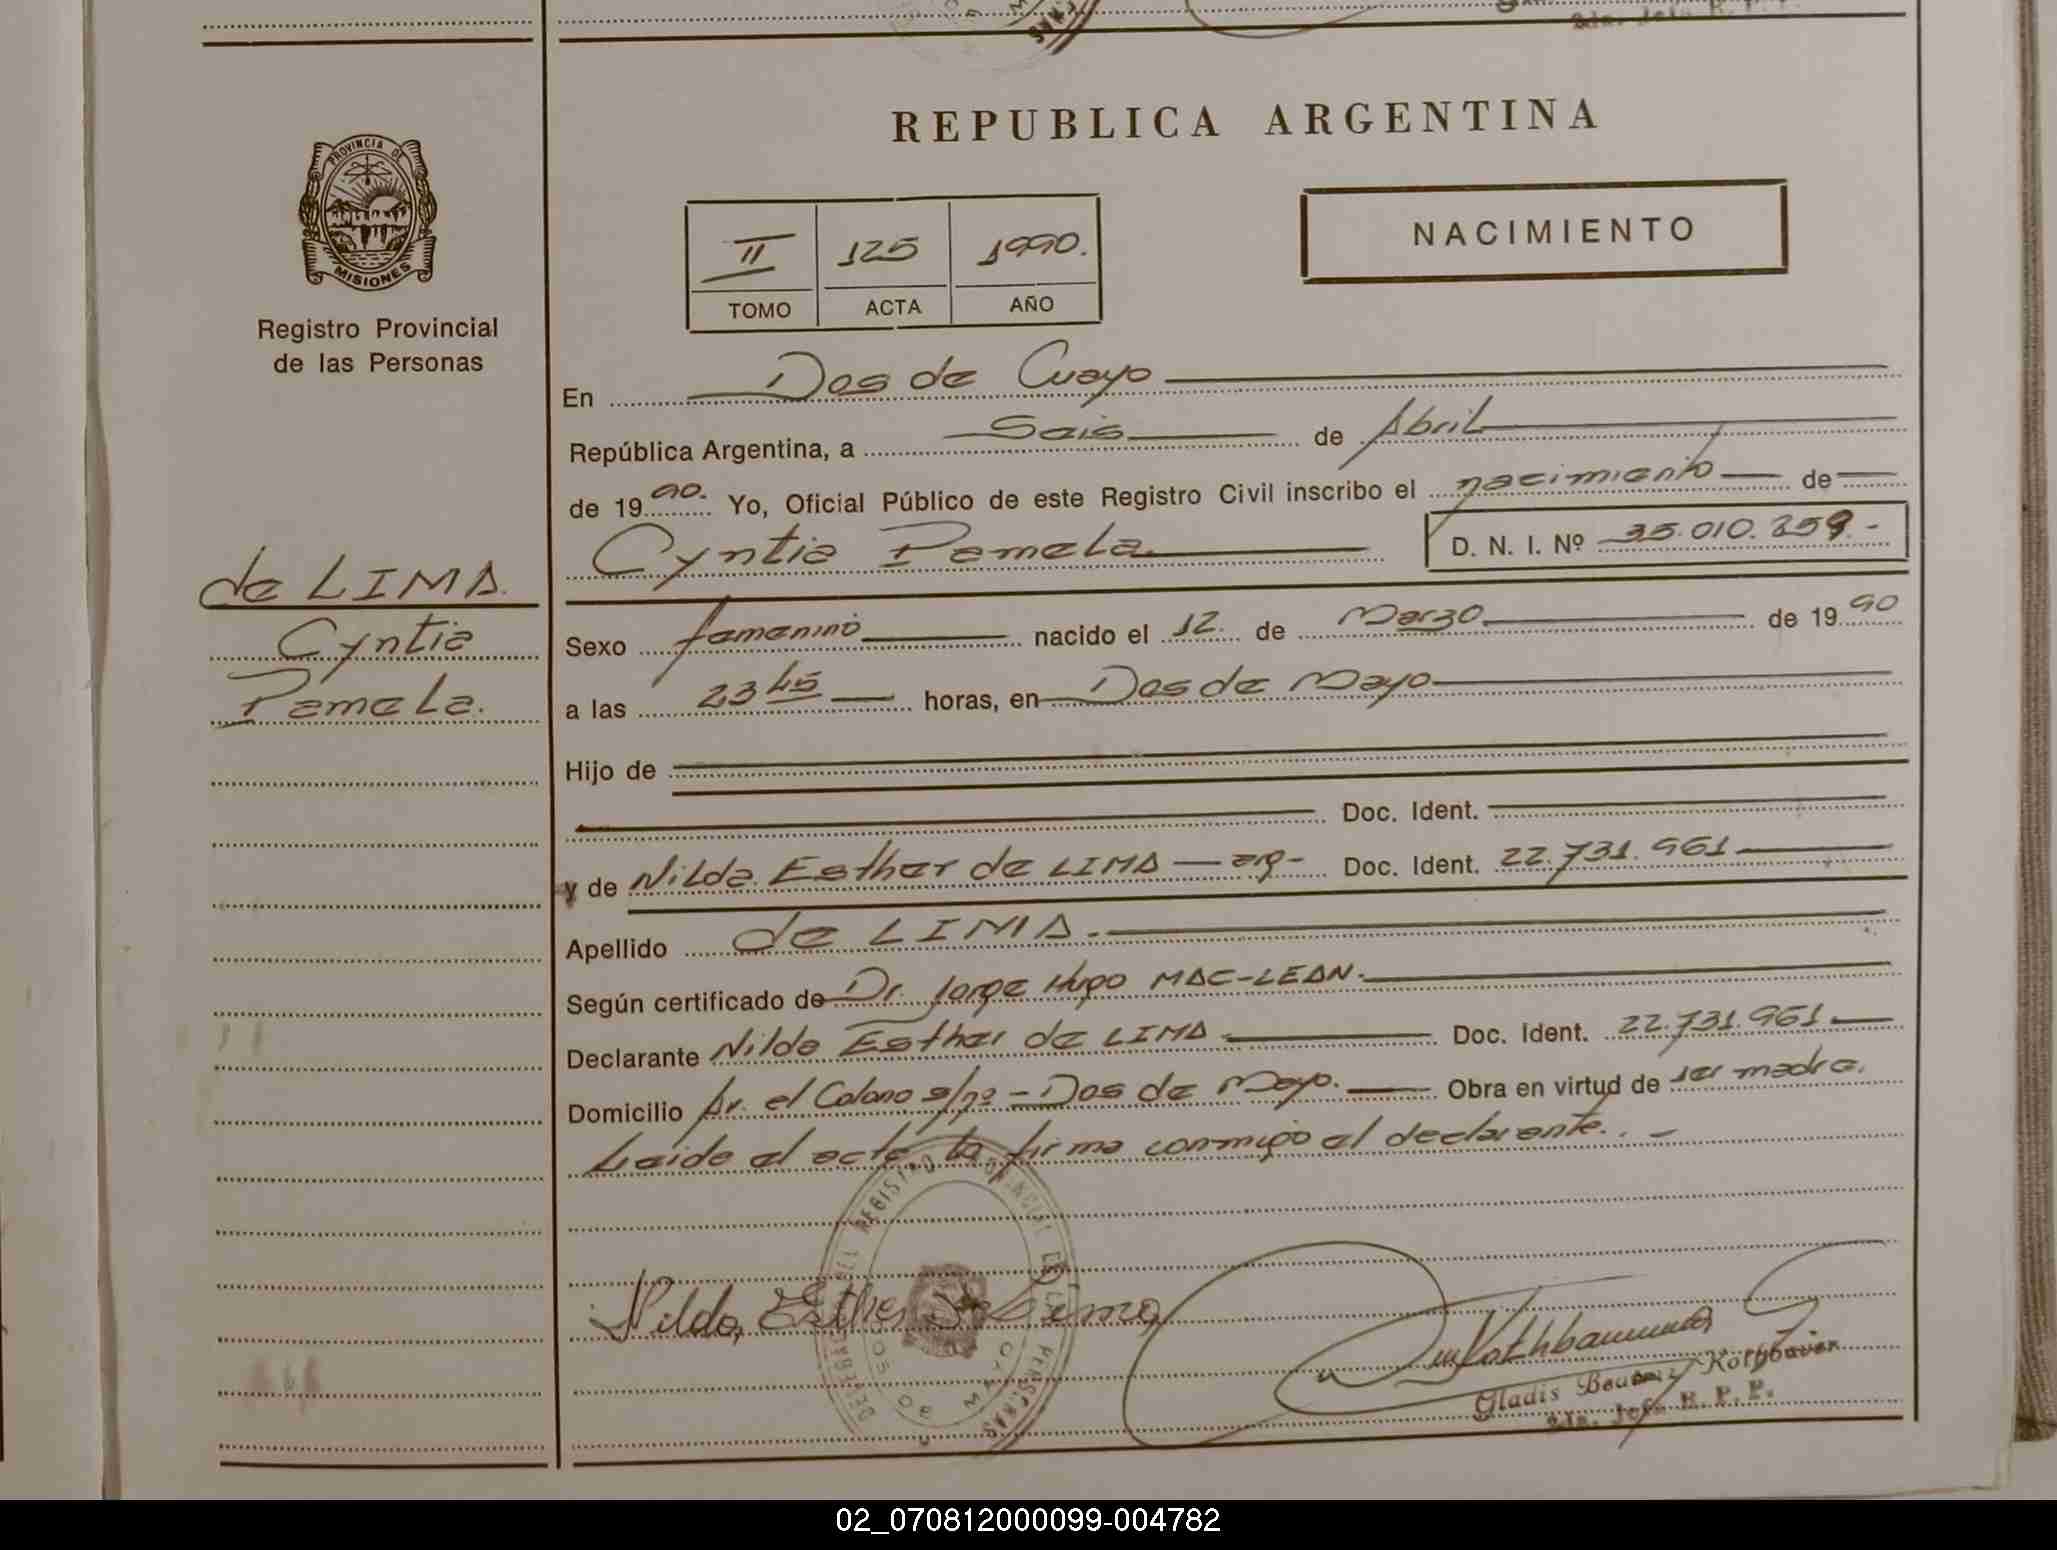 REPUBLICA ARGENTINA
PROVINCIA DE
MISIONES
Registro Provincial
de las Personas
NACIMIENTO
II 125 1990.
TOMO ACTA AÑO
de LIMA.
Cyntia
Pamela.
En Dos de Mayo
República Argentina, a Seis de Abril
de 1990. Yo, Oficial Público de este Registro Civil inscribo el nacimiento de
Cyntia Pamela D. N. I. Nº 35.010.259.-
Sexo femenino nacido el 12. de Marzo de 1990
a las 23 45 horas, en Dos de Mayo
Hijo de
Doc. Ident.
y de Nilda Esther de LIMA — arg- Doc. Ident. 22.731.961
Apellido de LIMA.
Según certificado de Dr. Jorge Hugo MAC-LEAN.
Declarante Nilda Esther de LIMA Doc. Ident. 22.731.961
Domicilio Av. el Colono s/nº - Dos de Mayo. Obra en virtud de ser madre.
Leida el acta la firma conmigo el declarante. . -
REGISTRO PROVINCIAL DE LAS PERSONAS
DOS DE MAYO
Nilda, Esther de Lima
Gladis
2da. Jefa R. P. P.
02_070812000099-004782